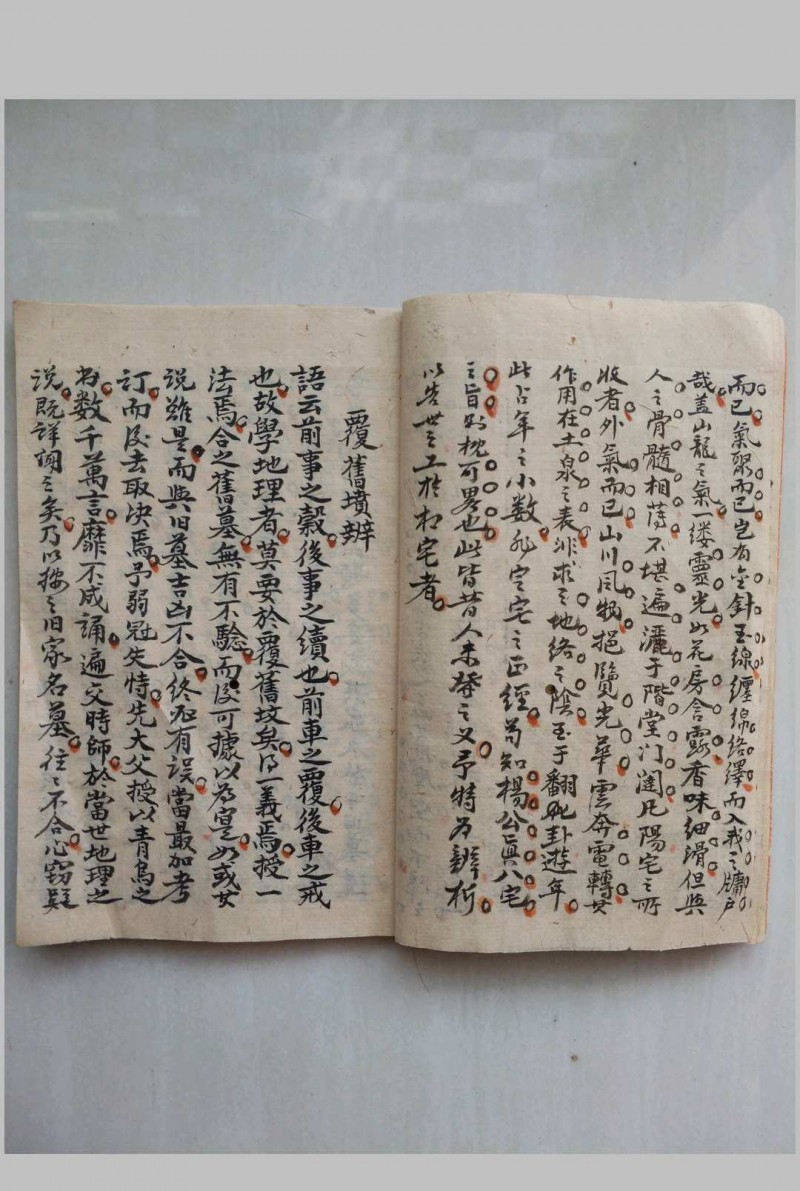 而已氣聚而已豈有金針玉線纏綿絡繹而入我之牖戶
哉蓋山龍之氣一缕靈光如花房含露香味细滑但與
人之骨髓相蒋不堪遍灑于階堂门闺凡陽宅之所
收者外氣而已山川风物挹覽光華雲奔電轉其
作用在土泉之表非求之地络之陰至于翻卦遊年
此占年之小数非定宅之正經苟知楊公真八宅
之旨则枕可畧也此皆昔人未發之义予特为辨析
以告世之工於相宅者
覆舊墳辨
語云前事之轂後事之續也前車之覆後車之戒
也故學地理者莫要於覆舊坟矣得一義焉授一
法焉合之舊墓無有不驗而后可據以为寔如或其
说雖是而與旧墓吉凶不合终必有误當最加考
订而后去取决焉予弱冠失恃先大父授以青烏之
书数千萬言靡不成誦遍交時師於當世地理之
说既詳調之矣乃以按之旧家名墓往之不合心窃疑